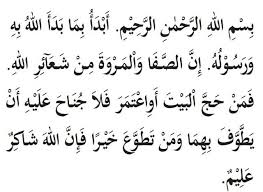 بِسْمِ اللهِ الرَّحْمٰنِ الرَّحِيْمِ. أَبْدَأُ بِمَا بَدَأَ اللهُ بِهِ
وَرَسُوْلُهُ. إِنَّ الصَّفَا وَالْمَرْوَةَ مِنْ شَعَائِرِ اللهِ.
فَمَنْ حَجَّ الْبَيْتَ أَوِاعْتَمَرَ فَلاَ جُنَاحَ عَلَيْهِ أَنْ
يَطَّوَّفَ بِهِمَا وَمَنْ تَطَوَّعَ خَيْرًا فَإِنَّ اللهَ شَاكِرٌ
عَلِيْمٌ.